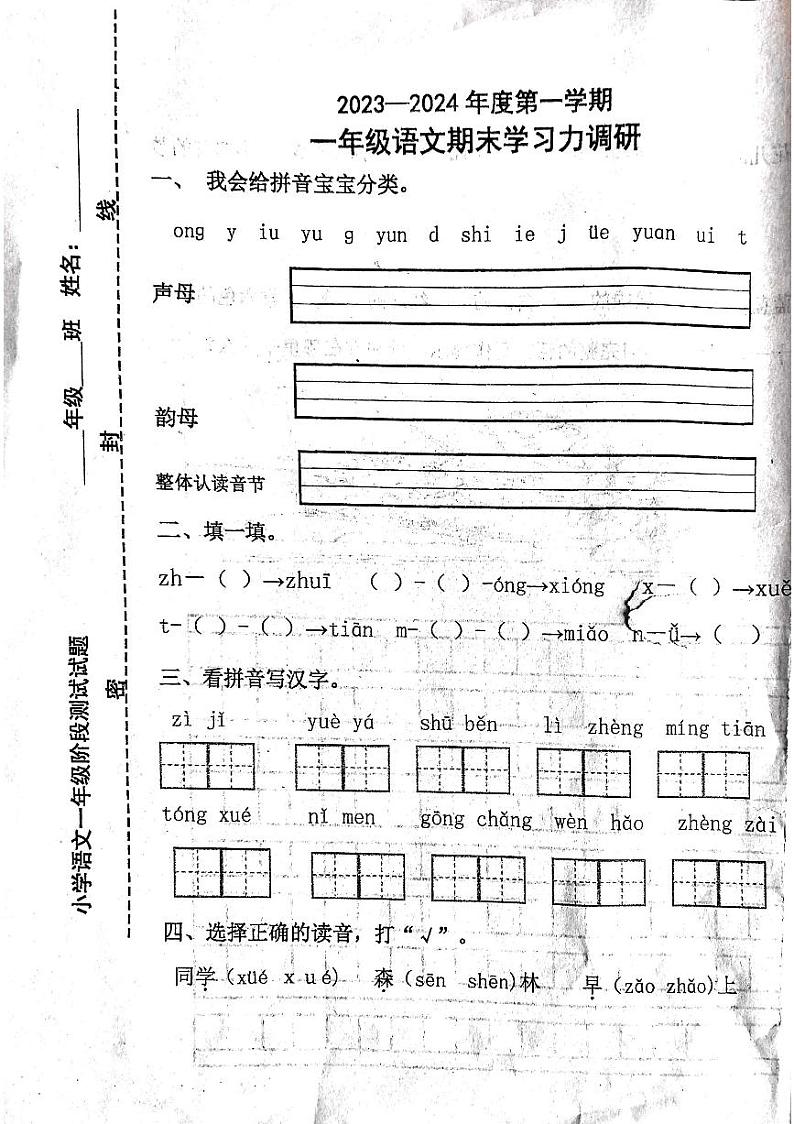 2023—2024年度第一学期
一年级语文期末学习力调研
一、 我会给拼音宝宝分类。
ong y iu yu g yun d shi ie j üe yuan ui t
声母
韵母
整体认读音节
二、填一填。
zh—（ ）→zhuī （ ）-（ ）-óng→xióng x—（ ）→xuě
t-（ ）-（ ）→tiān m-（ ）-（ ）→miǎo n—ǚ→（ ）
三、看拼音写汉字。
zì jǐ yuè yá shū běn lì zhèng míng tiān
tóng xué nǐ men gōng chǎng wèn hǎo zhèng zài
四、选择正确的读音，打“√”。
同学（xüé xué） 森（sēn shēn)林 早（zǎo zhǎo)上
小学语文一年级阶段测试试题 ____年级___班 姓名：________
密 封 线